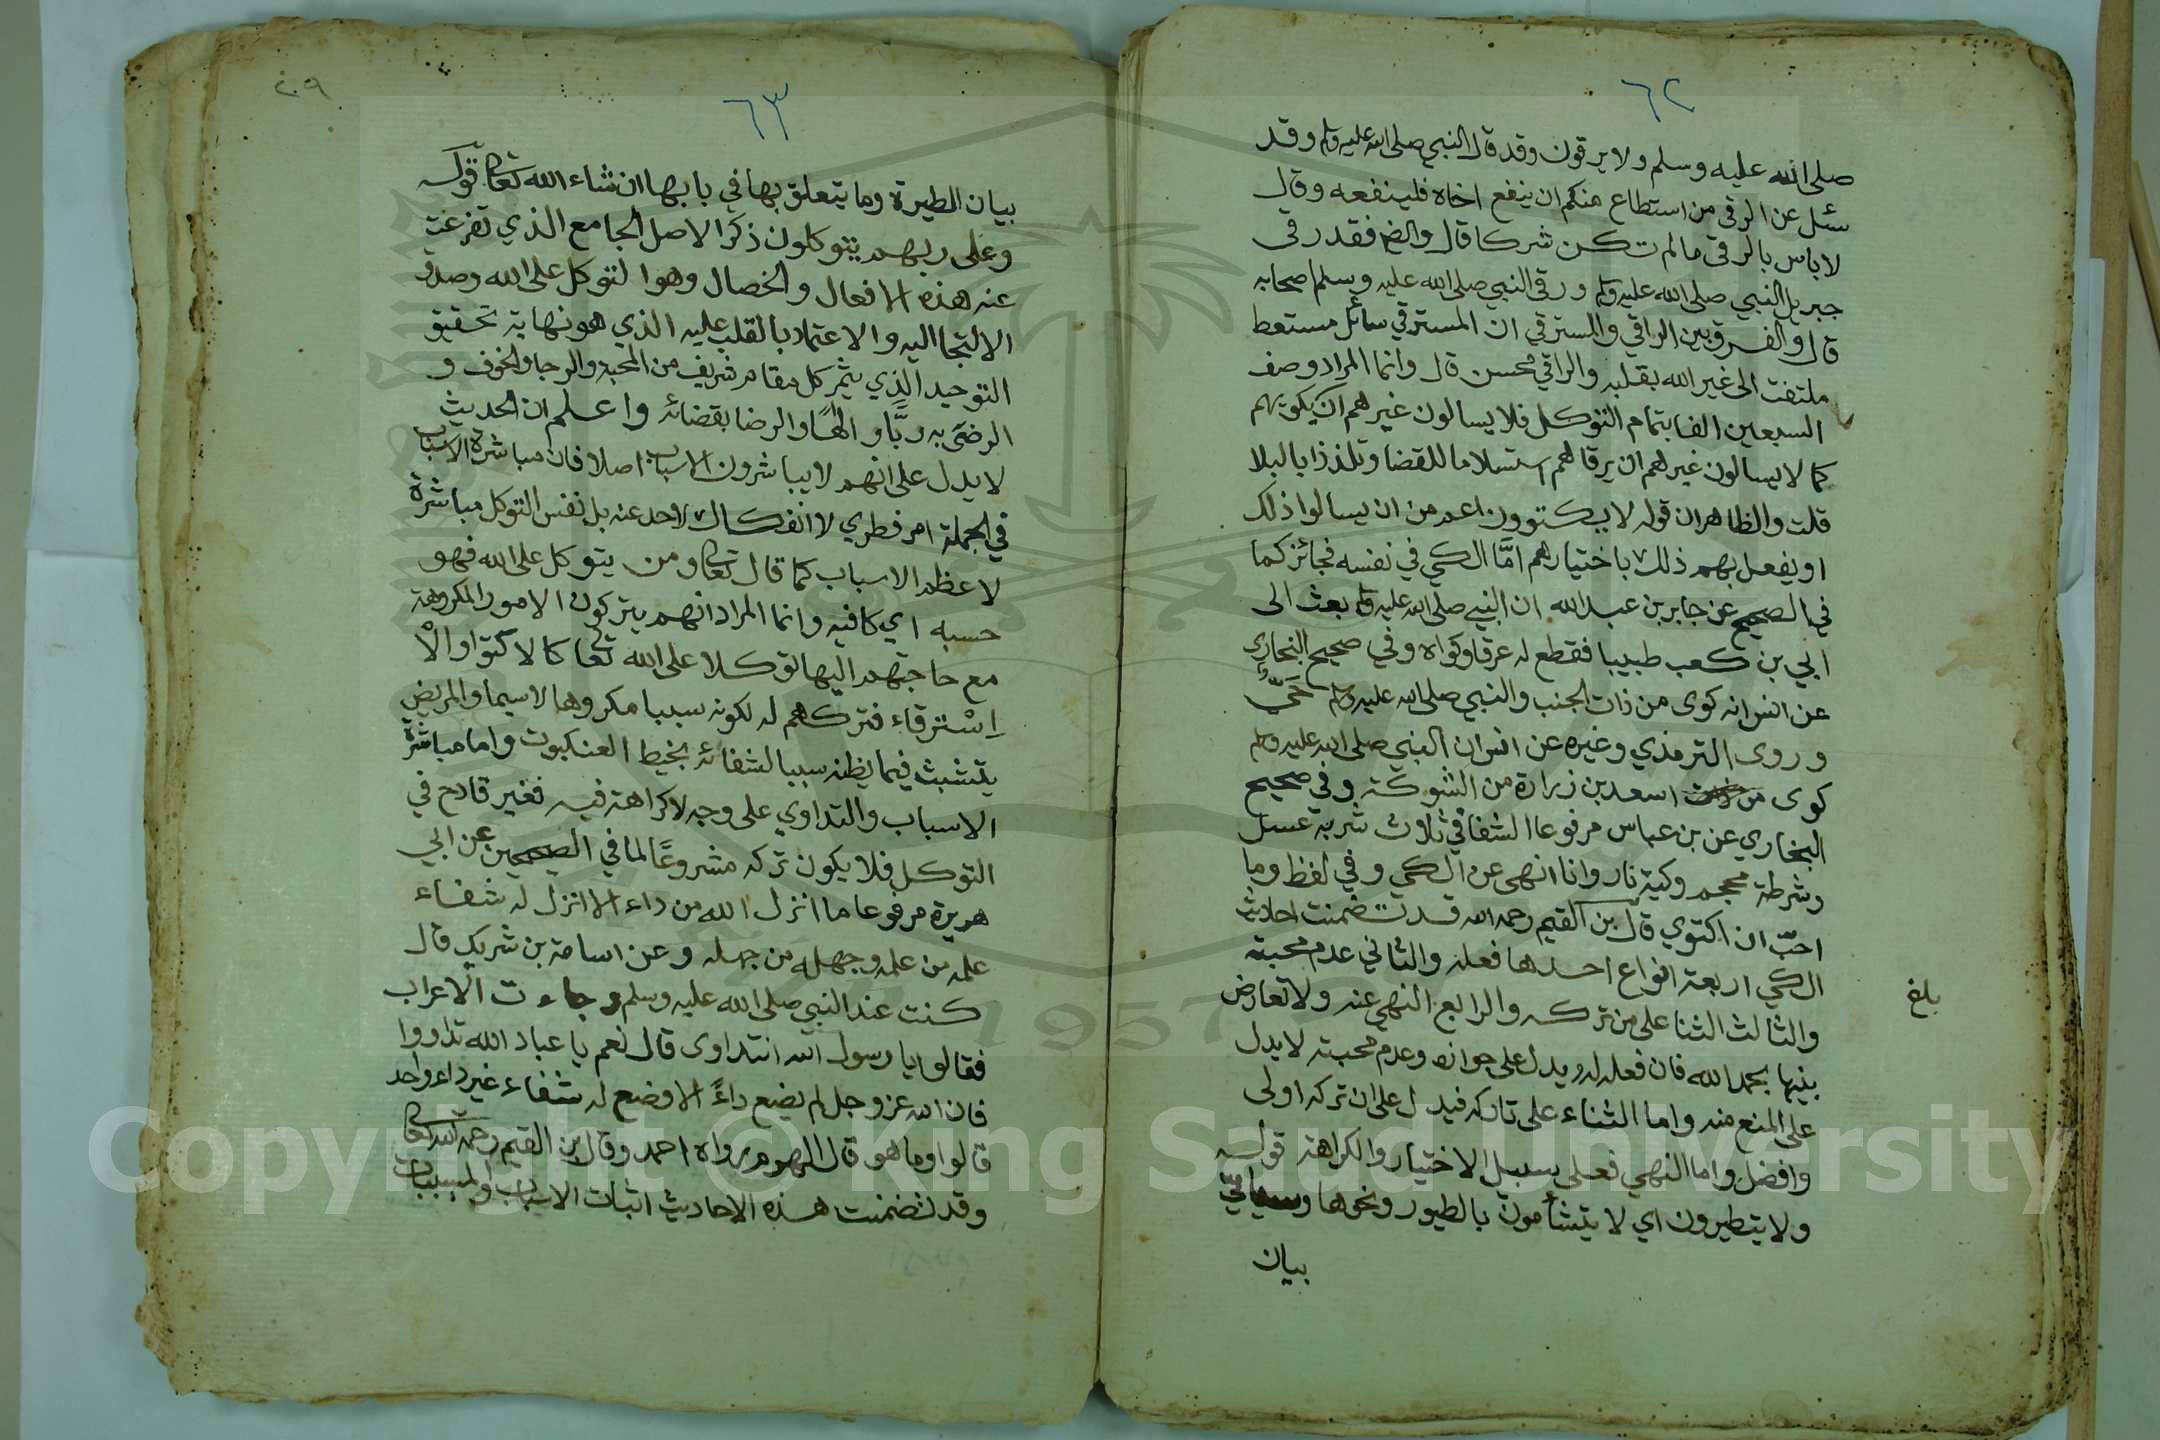 ٦٢
صلى الله عليه وسلم ولا يرقون وقد قال النبي صلى الله عليه وسلم وقد
سئل عن الرقى من استطاع منكم ان ينفع اخاه فلينفعه وقال
لا باس بالرقى ما لم تكن شركا قال وايضا فقد رقى
جبريل النبي صلى الله عليه وسلم ورقى النبي صلى الله عليه وسلم اصحابه
قال والفرق بين الراقي والمسترقي ان المسترقي سائل مستعط
ملتفت الى غير الله بقلبه والراقي محسن قال وانما المراد وصف
السبعين الفا بتمام التوكل فلا يسالون غيرهم ان يكويهم
كما لا يسالون غيرهم ان يرقاهم استسلاما للقضا وتلذذا بالبلا
قلت والظاهر ان قوله لا يكتوون اعم من ان يسالوا ذلك
او يفعل بهم ذلك باختيارهم امَّا الكي في نفسه فجائز كما
في الصحيح عن جابر بن عبد الله ان النبي صلى الله عليه وسلم بعث الى
ابي بن كعب طبيبا فقطع له عرقا وكواه وفي صحيح البخاري
عن انس انه كوى من ذات الجنب والنبي صلى الله عليه وسلم حَيٌّ
وروى الترمذي وغيره عن انس ان النبي صلى الله عليه وسلم
كوى اسعد بن زرارة من الشوكة وفي صحيح
البخاري عن بن عباس مرفوعا الشفا في ثلاث شربة عسل
وشرطة محجم وكية نار وانا انهى عن الكي وفي لفظ وما
احبّ ان اكتوي قال بن القيم رحمه الله قد تضمنت احاديث
الكي اربعة انواع احدها فعله والثاني عدم محبته
والثالث الثنا على من تركه والرابع النهي عنه ولا تعارض
بلغ
بينها بحمد الله فان فعله له يدل على جوازه وعدم محبته لا يدل
على المنع منه واما الثناء على تاركه فيدل على ان تركه اولى
وافضل واما النهي فعلى سبيل الاختيار والكراهة قوله
ولا يتطيرون اي لا يتشأمون بالطيور ونحوها وسيأتي
بيان
٦٣
٢٠٩
بيان الطيرة وما يتعلق بها في بابها ان شاء الله تعالى قوله
وعلى ربهم يتوكلون ذكر الاصل الجامع الذي تفرعت
عنه هذه الافعال والخصال وهو التوكل على الله وصدق
الالتجا اليه والاعتماد بالقلب عليه الذي هو نهاية تحقيق
التوحيد الذي يثمر كل مقام شريف من المحبة والرجا والخوف و
الرضى به ربًّا والهًا والرضا بقضائه واعلم ان الحديث
لا يدل على انهم لا يباشرون الاسباب اصلا فان مباشرة الاسباب
في الجملة امر فطري لا انفكاك لاحد عنه بل نفس التوكل مباشرة
لاعظم الاسباب كما قال تعالى ومن يتوكل على الله فهو
حسبه اي كافيه وانما المراد انهم يتركون الامور المكروهة
مع حاجتهم اليها توكلا على الله تعالى كالاكتوا والا
اِسْترقاء فتركهم له لكونه سببا مكروها لا سيما والمريض
يتشبث فيما يظنه سببا لشفائه بخيط العنكبوت واما مباشرة
الاسباب والتداوي على وجه لا كراهة فيه فغير قادح في
التوكل فلا يكون تركه مشروعًا لما في الصحيحين عن ابي
هريرة مرفوعا ما انزل الله من داء الا انزل له شفاء
علمه من علمه وجهله من جهله وعن اسامة بن شريك قال
كنت عند النبي صلى الله عليه وسلم وجاءت الاعراب
فقالوا يا رسول الله انتداوى قال نعم يا عباد الله تداووا
فان الله عز وجل لم يضع داءً الا وضع له شفاء غير داء واحد
قالوا وما هو قال الهرم رواه احمد وقال بن القيم رحمه الله تعالى
وقد تضمنت هذه الاحاديث اثبات الاسباب والمسببات
1957
Copyright © King Saud University